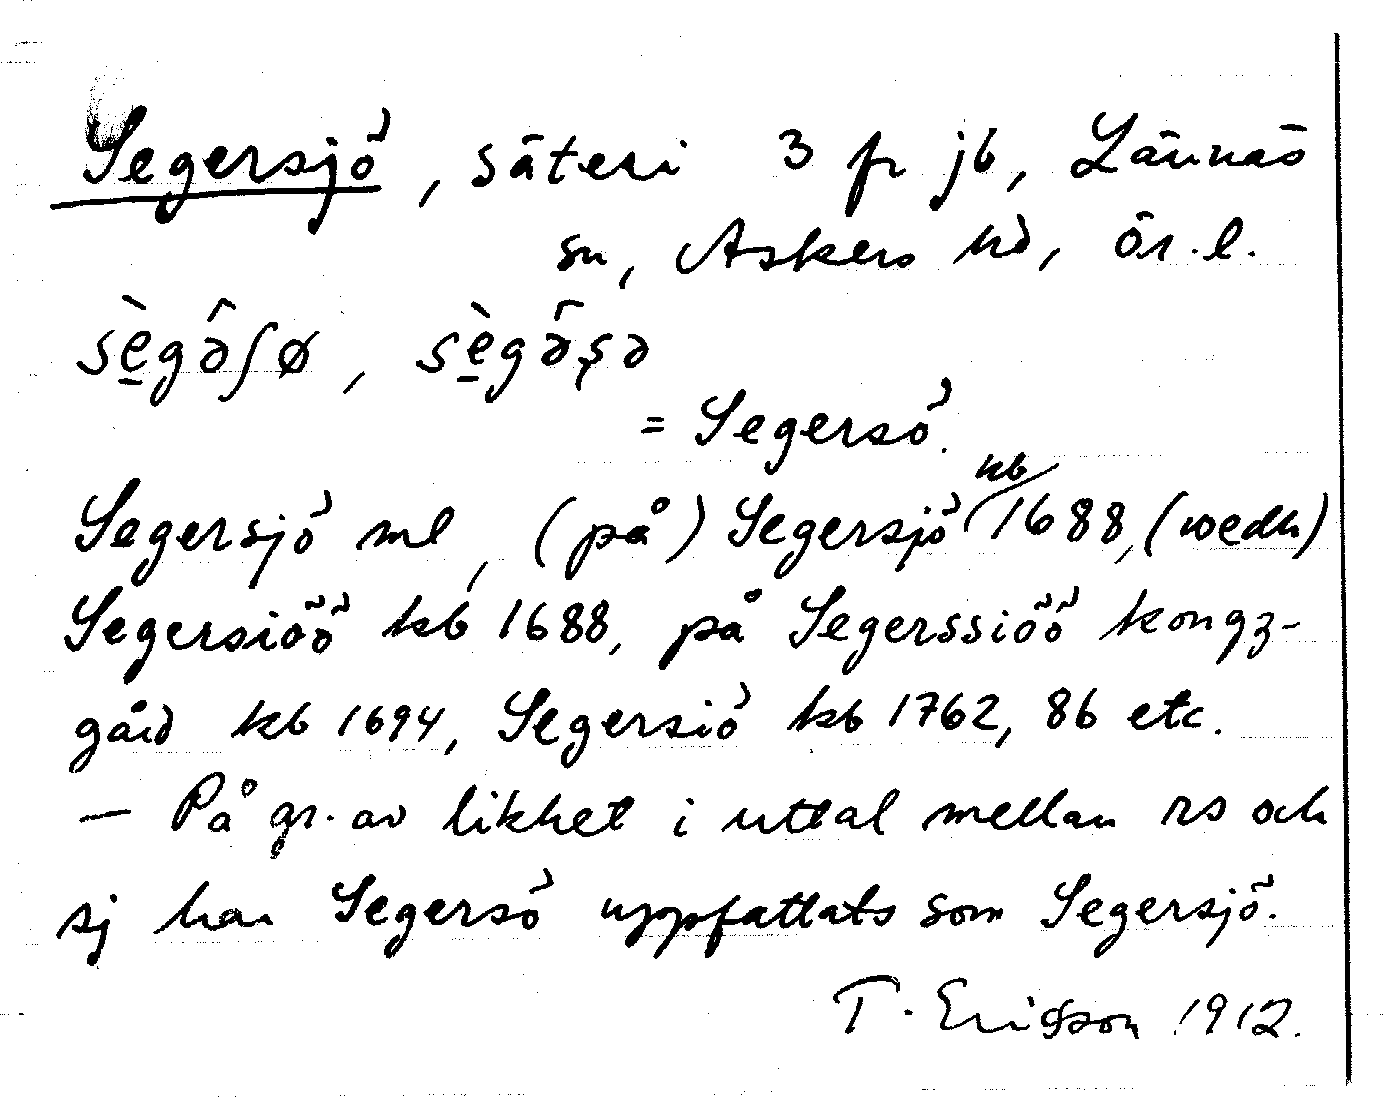 Segersjö, säteri 3 fr jb, Lännäs
sn, Askers hd, Ör. l.
sè̱gə̂ʃø, sè̱gə̂ʂə
= Segersö.
Segersjö ml, (på) Segersjö kb 1688, (wedh)
Segersiöö kb 1688, på Segerssiöö kongz-
gård kb 1694, Segersiö kb 1762, 86 etc.
— På gr. av likhet i uttal mellan rs och
sj har Segersö uppfattats som Segersjö.
T. Ericsson 1912.